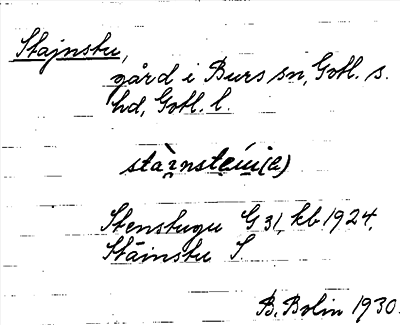 Stajnstu,
gård i Burs sn, Gotl. s.
hd, Gotl. l.
Stenstugu G 31, kb 1924,
Stäinstu S.
B. Bolin 1930.